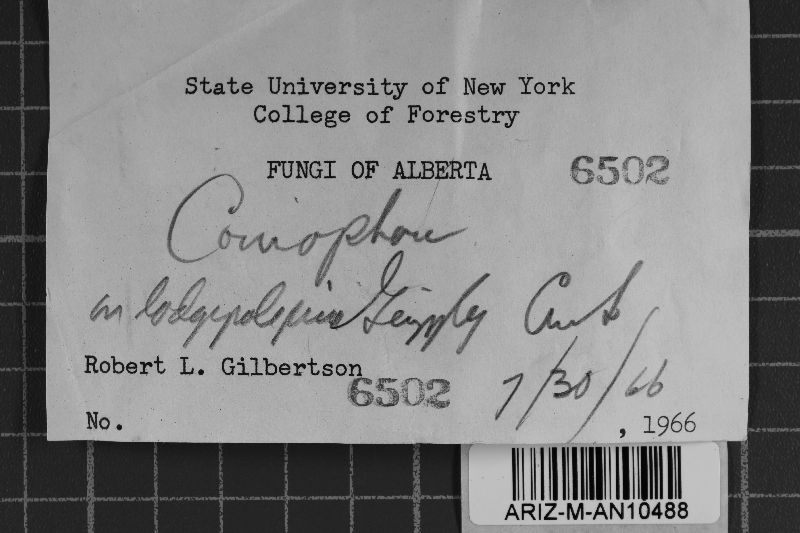 State University of New York
College of Forestry
FUNGI OF ALBERTA 6502
Coniophora
on lodgepole pine
Robert L. Gilbertson
6502 7/30/66
No. , 1966
ARIZ-M-AN10488